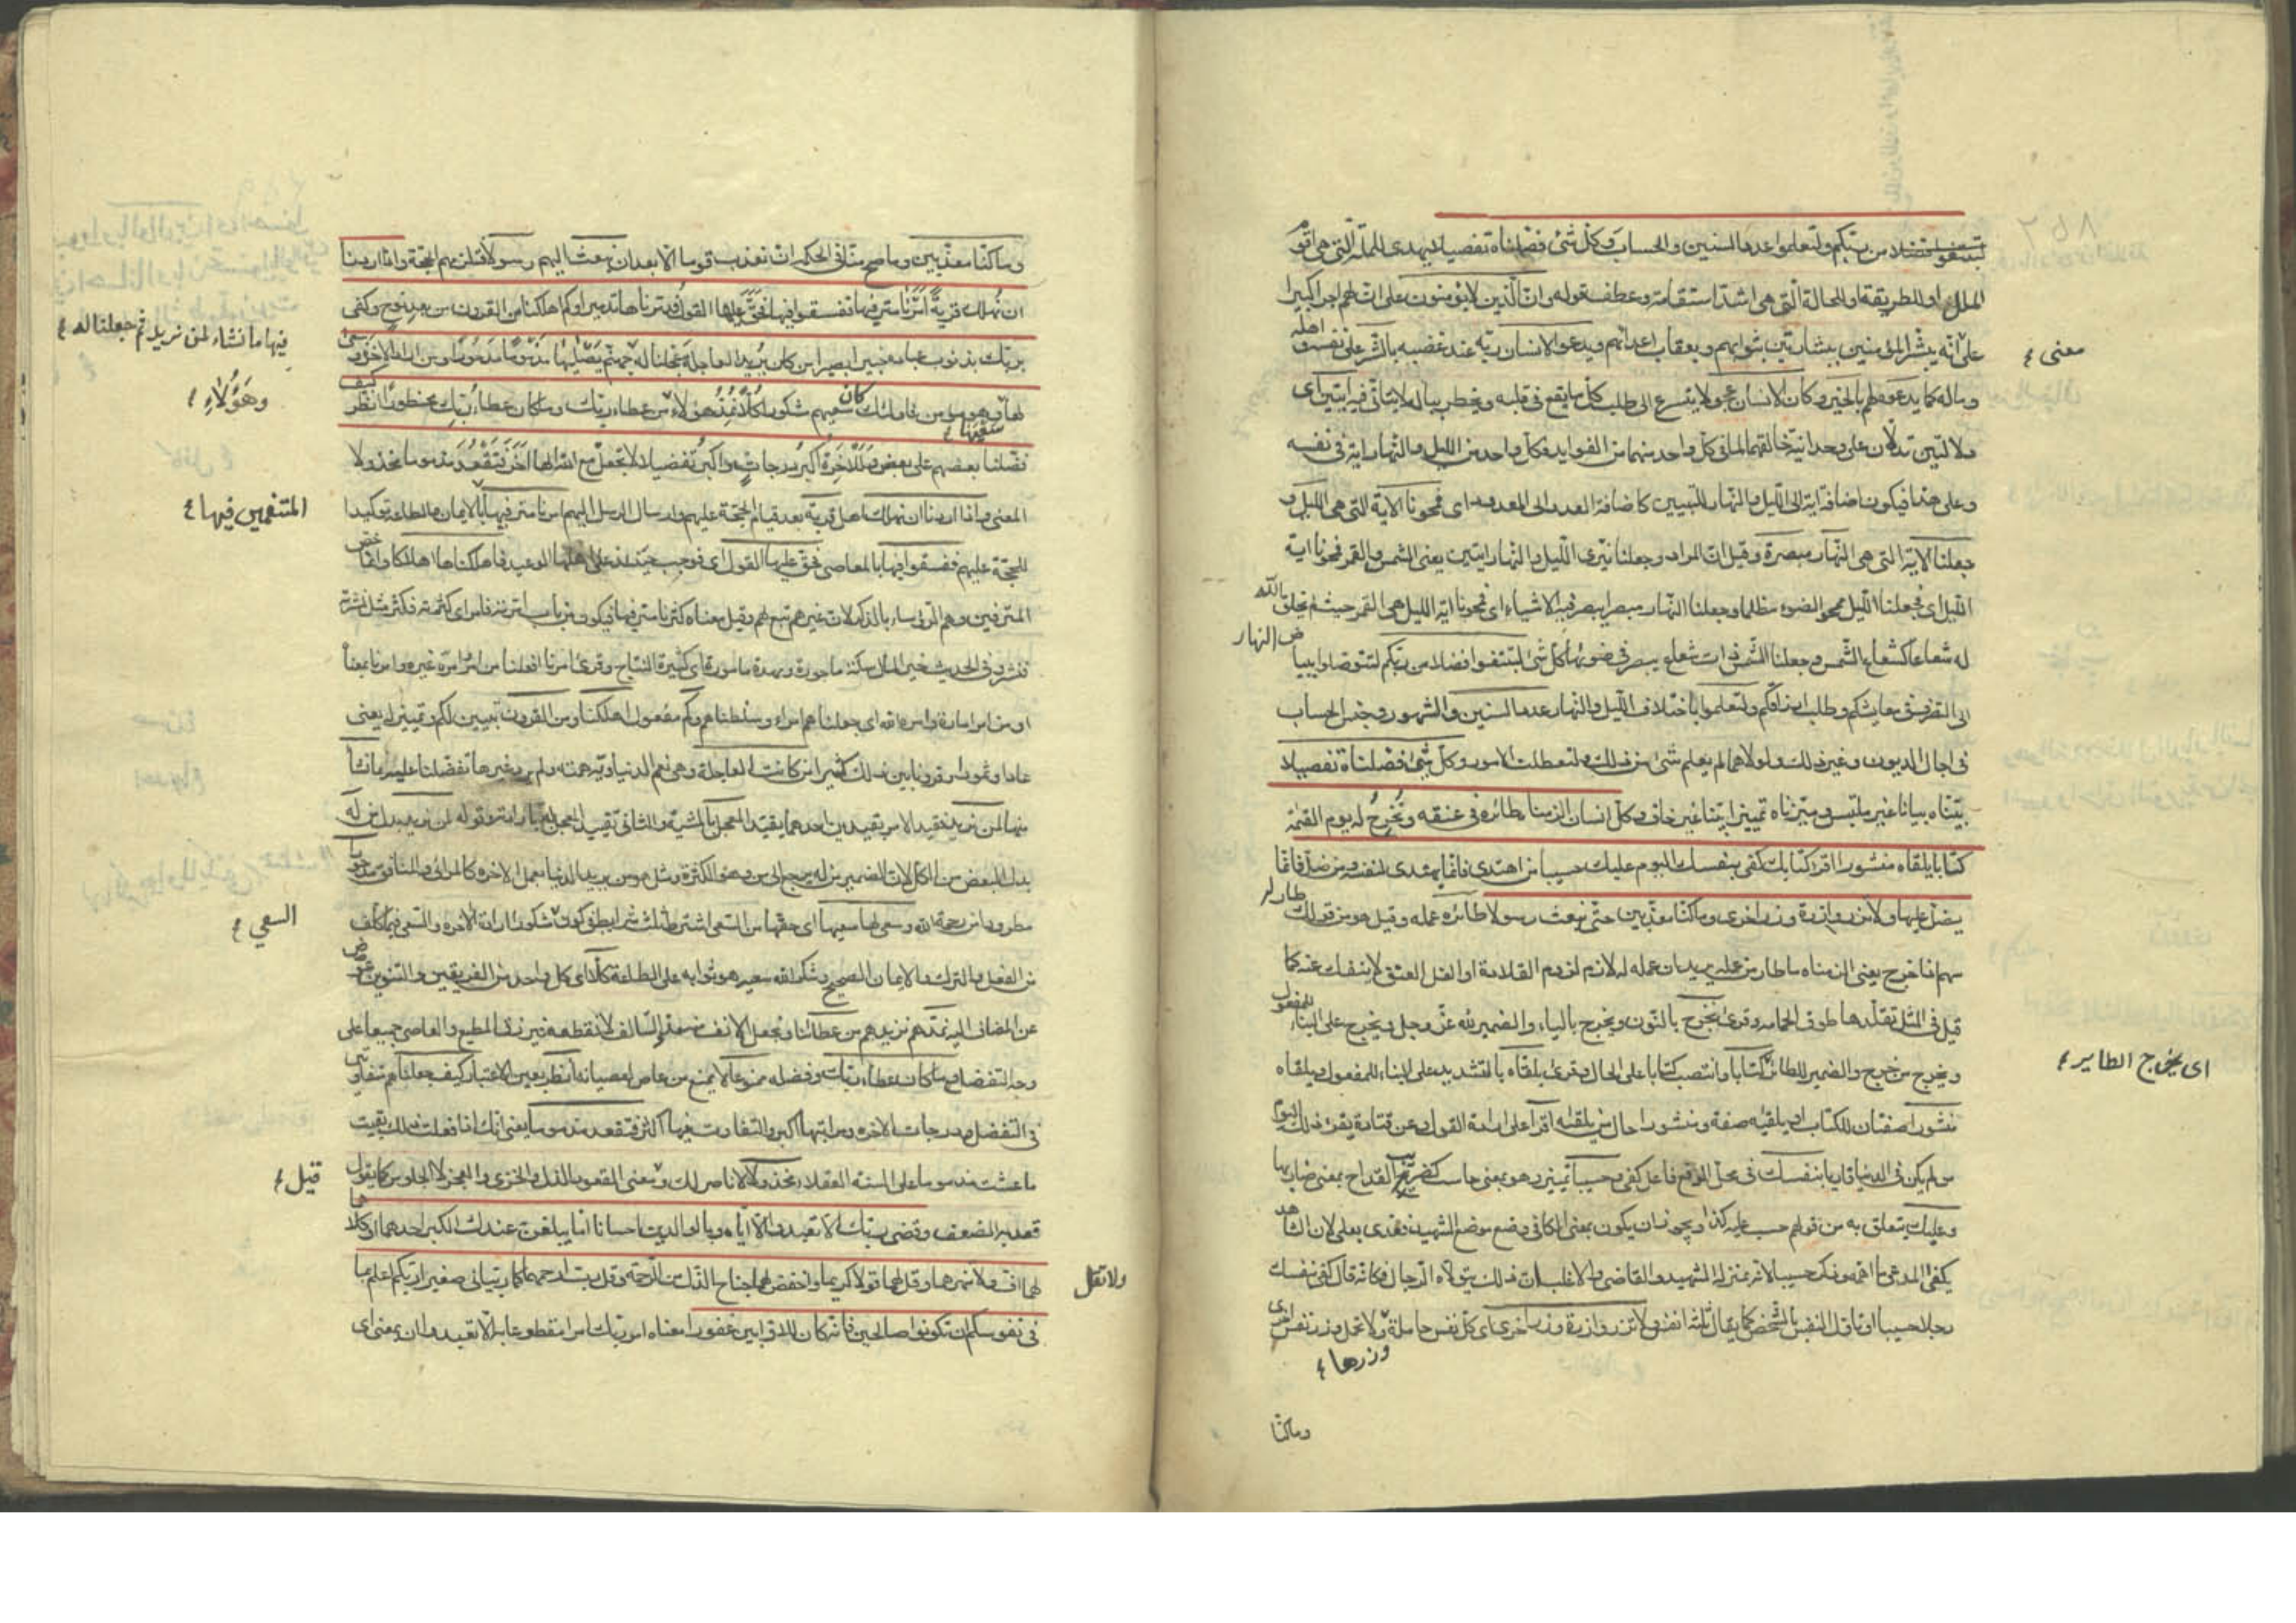 لتبتغوا فضلا من ربكم ولتعلموا عدد السنين والحساب وكل شئ فصلناه تفصيلا يهدى للملة التى هى اقوم
الملل او للطريقة او الحالة التى هى اشد استقامة وعطف قوله وان الذين لا يؤمنون على ان لهم اجرا كبيرا
على انه يبشر المؤمنين ببشارتين بثوابهم وبعقاب اعدائهم ويدعو الانسان ربه عند غضبه بالشر على نفسه و اهله
معنى
وماله كما يدعوه لهم بالخير وكان الانسان عجولا يتسرع الى طلب كل ما يقع فى قلبه ويخطر بباله لا يتانى فيه ايتين اى
دلالتين تدلان على وحدانية خالقهما لما فى كل واحد منهما من الفوايد وكل واحد من الليل والنهار اية فى نفسه
وعلى هذا فيكون اضافة اية الى الليل والنهار للتبيين كاضافة العدد الى المعدود اى فمحونا الآية التى هى الليل و
جعلنا الآية التى هى النهار مبصرة وقيل ان المراد وجعلنا نيرى الليل والنهار ايتين يعنى الشمس والقمر فمحونا اية
الليل اى فجعلنا الليل ممحو الضوء مظلما وجعلنا النهار مبصرا يبصر فيه الاشياء اى فمحونا اية الليل هى القمر حيث لم يخلق الله
له شعاعا كشعاع الشمس وجعلنا الشمس ذات شعاع يبصر فى ضوئها كل شئ لتبتغوا فضلا من ربكم لتتوصلوا ببياض النهار
الى التصرف فى معايشكم وطلب ارزاقكم ولتعلموا باختلاف الليل والنهار عدد السنين والشهور وجنس الحساب
فى اجال الديون وغير ذلك ولولاهما لم يعلم شئ من ذلك ولتعطلت الامور وكل شئ فصلناه تفصيلا
بيناه بيانا غير ملتبس وميزناه تمييزا بينا غير خاف وكل انسان الزمناه طائره فى عنقه ونخرج له يوم القيمة
كتابا يلقاه منشورا اقرا كتابك كفى بنفسك اليوم عليك حسيبا من اهتدى فانما يهتدى لنفسه ومن ضل فانما
يضل عليها ولا تزر وازرة وزر اخرى وما كنا معذبين حتى نبعث رسولا طائره عمله وقيل هو من قولك طار له
سهم اذا خرج يعنى الزمناه ما طار من عمله يريد ان عمله له لازم لزوم القلادة او الغل العنق لا ينفك عنه كما
قيل فى المثل تقلدها طوق الحمامة وقرئ نخرج بالنون ويخرج بالياء والضمير لله عز وجل ويخرج على البناء للمفعول
ويخرج من خرج والضمير للطائر كتابا وانتصب كتابا على الحال وقرئ يلقاه بالتشديد على البناء للمفعول ويلقاه
اى يخرج الطاير
منشورا صفتان للكتاب او يلقيه صفة ومنشورا حال من يلقاه اقرا على ارادة القول وعن قتادة يقرء ذلك اليوم
من لم يكن فى الدنيا قاريا بنفسك فى محل الرفع فاعل كفى وحسيبا تمييز وهو بمعنى حاسب كضريب القداح بمعنى ضاربها
وعليك يتعلق به من قولهم حسب عليه كذا ويجوز ان يكون بمعنى الكافى وضع موضع الشهيد فعدى بعلى لان الشاهد
يكفى المدعى ما اهمه وذكر حسيبا لانه بمنزلة الشهيد والقاضى والاغلب ان ذلك يتولاه الرجال فكانه قال كفى بنفسك
رجلا حسيبا او تاول النفس بالشخص كما يقال ثلثة انفس ولا تزر وازرة وزر اخرى اى كل نفس حاملة ولا تحمل وزر نفس اخرى
وزرها
وما كنا
وما كنا معذبين وما صح منا فى الحكم ان نعذب قوما الا بعد ان نبعث اليهم رسولا فتلزمهم الحجة واذا اردنا
ان نهلك قرية امرنا مترفيها ففسقوا فيها فحق عليها القول فدمرناها تدميرا وكم اهلكنا من القرون من بعد نوح وكفى
بربك بذنوب عباده خبيرا بصيرا من كان يريد العاجلة عجلنا له جهنم يصليها مذموما مدحورا ومن اراد الاخرة وسعى
فيها ما نشاء لمن نريد ثم جعلنا له
لها سعيها وهو مؤمن فاولئك كان سعيهم مشكورا كلا نمد هؤلاء من عطاء ربك وما كان عطاء ربك محظورا انظر كيف
وهؤلاء
فضلنا بعضهم على بعض وللآخرة اكبر درجات واكبر تفضيلا لا تجعل مع الله الها اخر فتقعد مذموما مخذولا
المعنى واذا اردنا ان نهلك اهل قرية بعد قيام الحجة عليهم وارسال الرسل اليهم امرنا مترفيها بالايمان والطاعة توكيدا
المتنعمين فيها
للحجة عليهم ففسقوا فيها بالمعاصى فحق عليها القول اى فوجب حينئذ على اهلها الوعيد فاهلكناها اهلاكا وانما خص
المترفين وهم الرؤساء بالذكر لان غيرهم تبع لهم وقيل معناه كثرنا مترفيها فيكون من باب امرته فامر اى كثرته فكثر مثل نشرته
فنشر وفى الحديث خير المال سكة مابورة ومهرة مامورة اى كثيرة النتاج وقرئ آمرنا افعلنا من امر وامره غيره وامرنا بمعناه
او من امر امارة وامره الله اى جعلناهم امراء وسلطناهم وكم مفعول اهلكنا ومن القرون تبيين لكم وتمييز له يعنى
عادا وثمود وقرونا بين ذلك كثيرا من كانت العاجلة وهى نعم الدنيا وية همته ولم يرد غيرها تفضلنا عليه بما نشاء
منها لمن نريد فقيد الامر بقيدين احدهما بقيد المعجل بالمشية والثانى تقييد المعجل له بارادته وقوله لمن نريد بدل من له
بدل البعض من الكل لان الضمير من له يرجع الى من وهو للكثرة ومثل هو من يريد الدنيا بعمل الاخرة كالمرائى والمنافق مدحورا
مطرودا من رحمة الله وسعى لها سعيها اى حقها من السعى اشترط ثلث شرايط فى كون مشكورا ارادة الاخرة والسعى فيما كلف
السعي
من الفعل والترك والايمان الصحيح وشكر الله سعيه هو ثوابه على الطاعة كلا اى كل واحد من الفريقين والتنوين عوض
عن المضاف اليه نمدهم نزيدهم من عطائنا ونجعل الآنف منه مددا للسالف لا نقطعه فنرزق المطيع والعاصى جميعا على
وجه التفضل وما كان عطاء ربك وفضله ممنوعا لا يمنع من عاص لعصيانه انظر بعين الاعتبار كيف جعلناهم متفاوتين
فى التفضل ودرجات الاخرة ومراتبها اكبر والتفاوت فيها اكثر فتقعد مذموما يعنى انك اذا فعلت ذلك بقيت
ما عشت مذموما على السنة العقلاء مخذولا لا ناصر لك ومعنى القعود الذل والخزى والعجز لا الجلوس كما يقول
قيل
قعد به الضعف وقضى ربك الا تعبدوا الا اياه وبالوالدين احسانا اما يبلغن عندك الكبر احدهما او كلاهما
لهما اف ولا تنهرهما وقل لهما قولا كريما واخفض لهما جناح الذل من الرحمة وقل رب ارحمهما كما ربيانى صغيرا ربكم اعلم بما
ولا تقل
فى نفوسكم ان تكونوا صالحين فانه كان للاوابين غفورا معناه امر ربك امرا مقطوعا به الا تعبدوا ان بمعنى اى